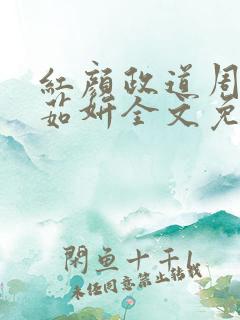 红颜政道周
茹妍全文免
闲鱼十千1
未经同意禁止转载